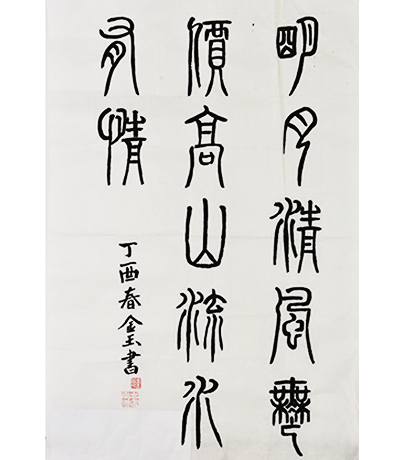 明月清風無
價高山流水
有情
丁酉春金玉書